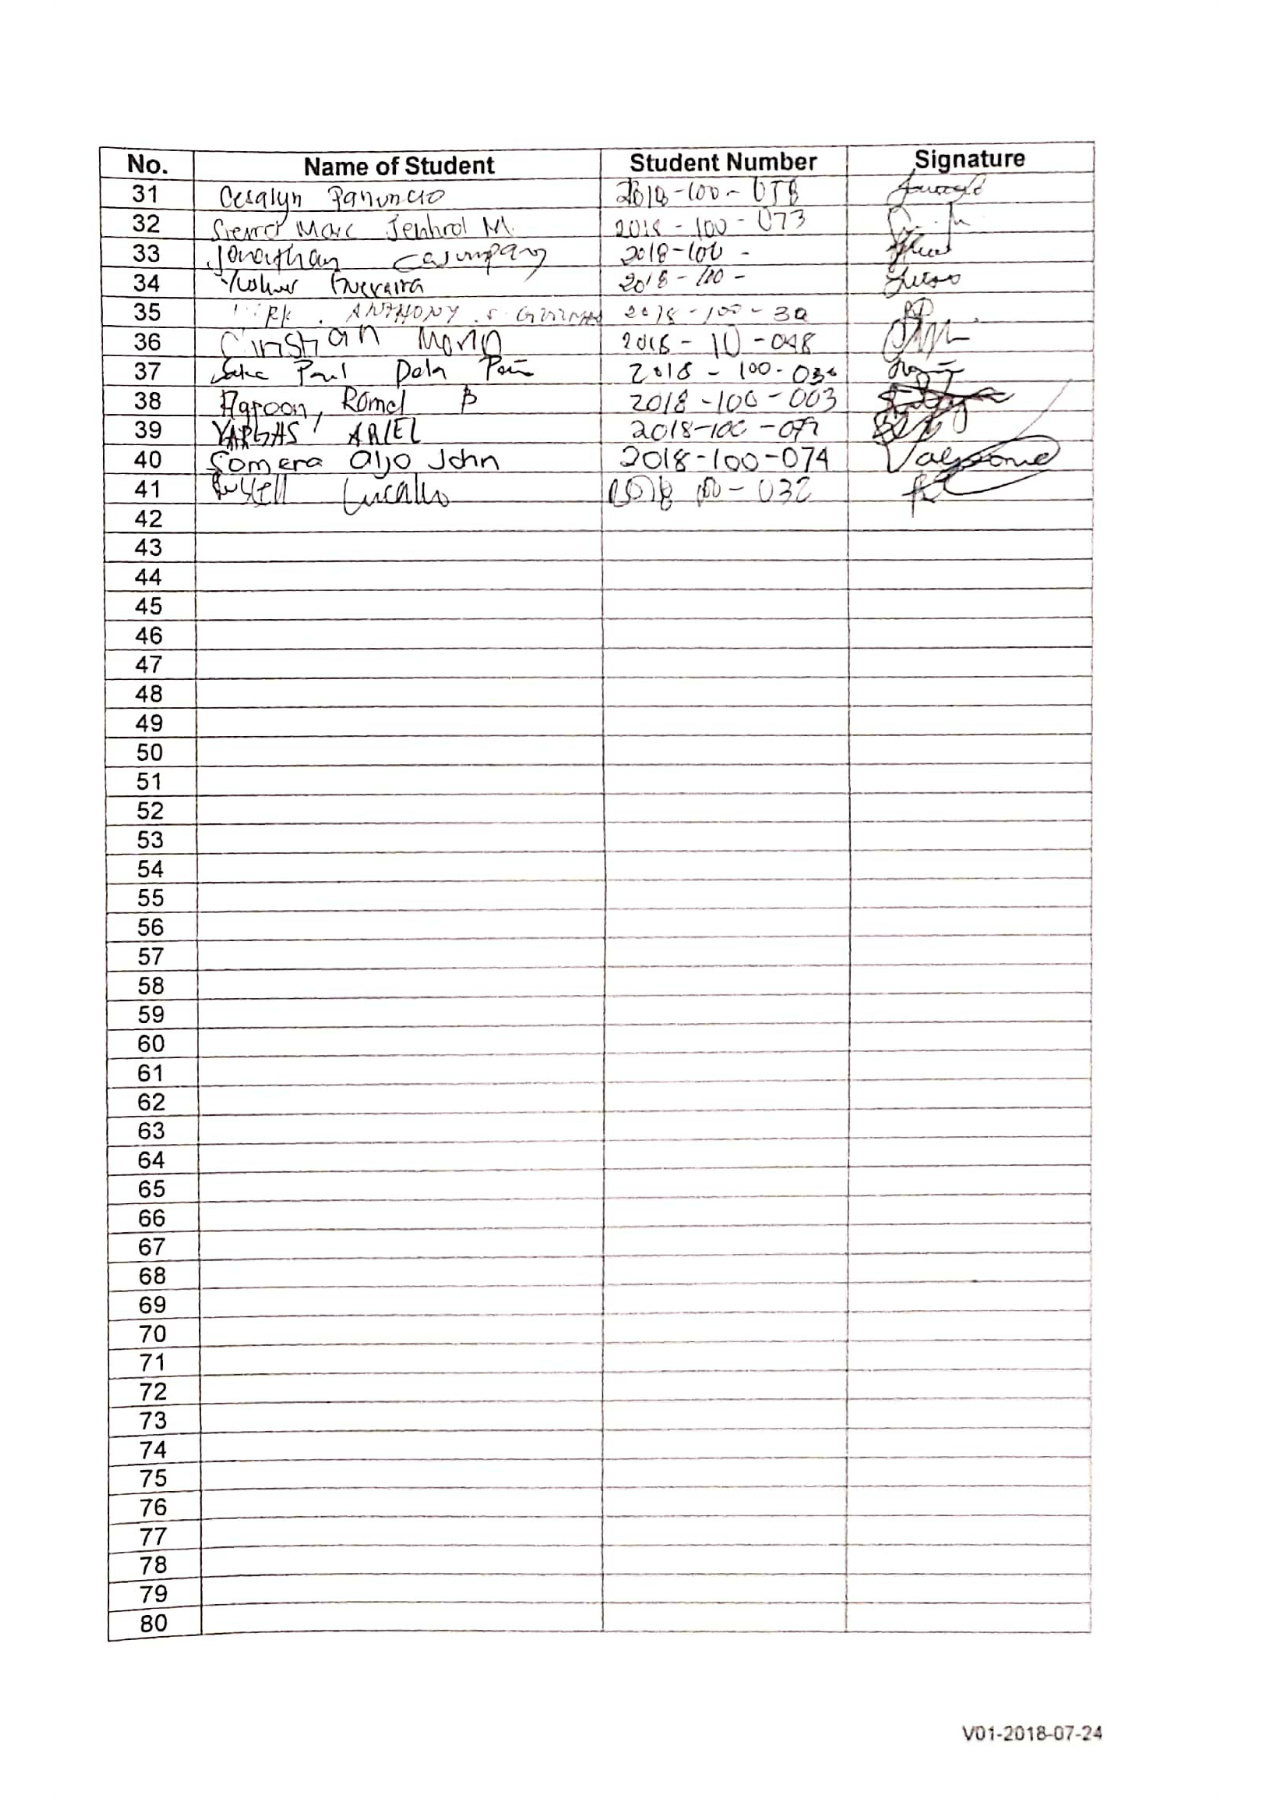 No. Name of Student Student Number Signature
31 Cesalyn Panuncio 2018-100-
32 Marc M. 2018-100-073
33 Jonathan Casumpang 2018-100-
34 2018-100-
35 ANTHONY S. 2018-100-30
36 2018-10-048
37 Jake Paul Dela Peña 2018-100-036
38 Agpoon, Romel B 2018-100-003
39 VARGAS, ARIEL 2018-100-
40 Somera Aljo John 2018-100-074
41 Russell Lucallo 2018 100-032
42
43
44
45
46
47
48
49
50
51
52
53
54
55
56
57
58
59
60
61
62
63
64
65
66
67
68
69
70
71
72
73
74
75
76
77
78
79
80
V01-2018-07-24